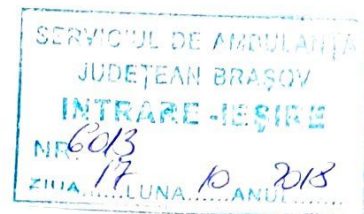 SERVICIUL DE AMBULANȚĂ
JUDEȚEAN BRAȘOV
INTRARE-IEȘIRE
NR. 6013
ZIUA 17 LUNA 10 ANUL 2018